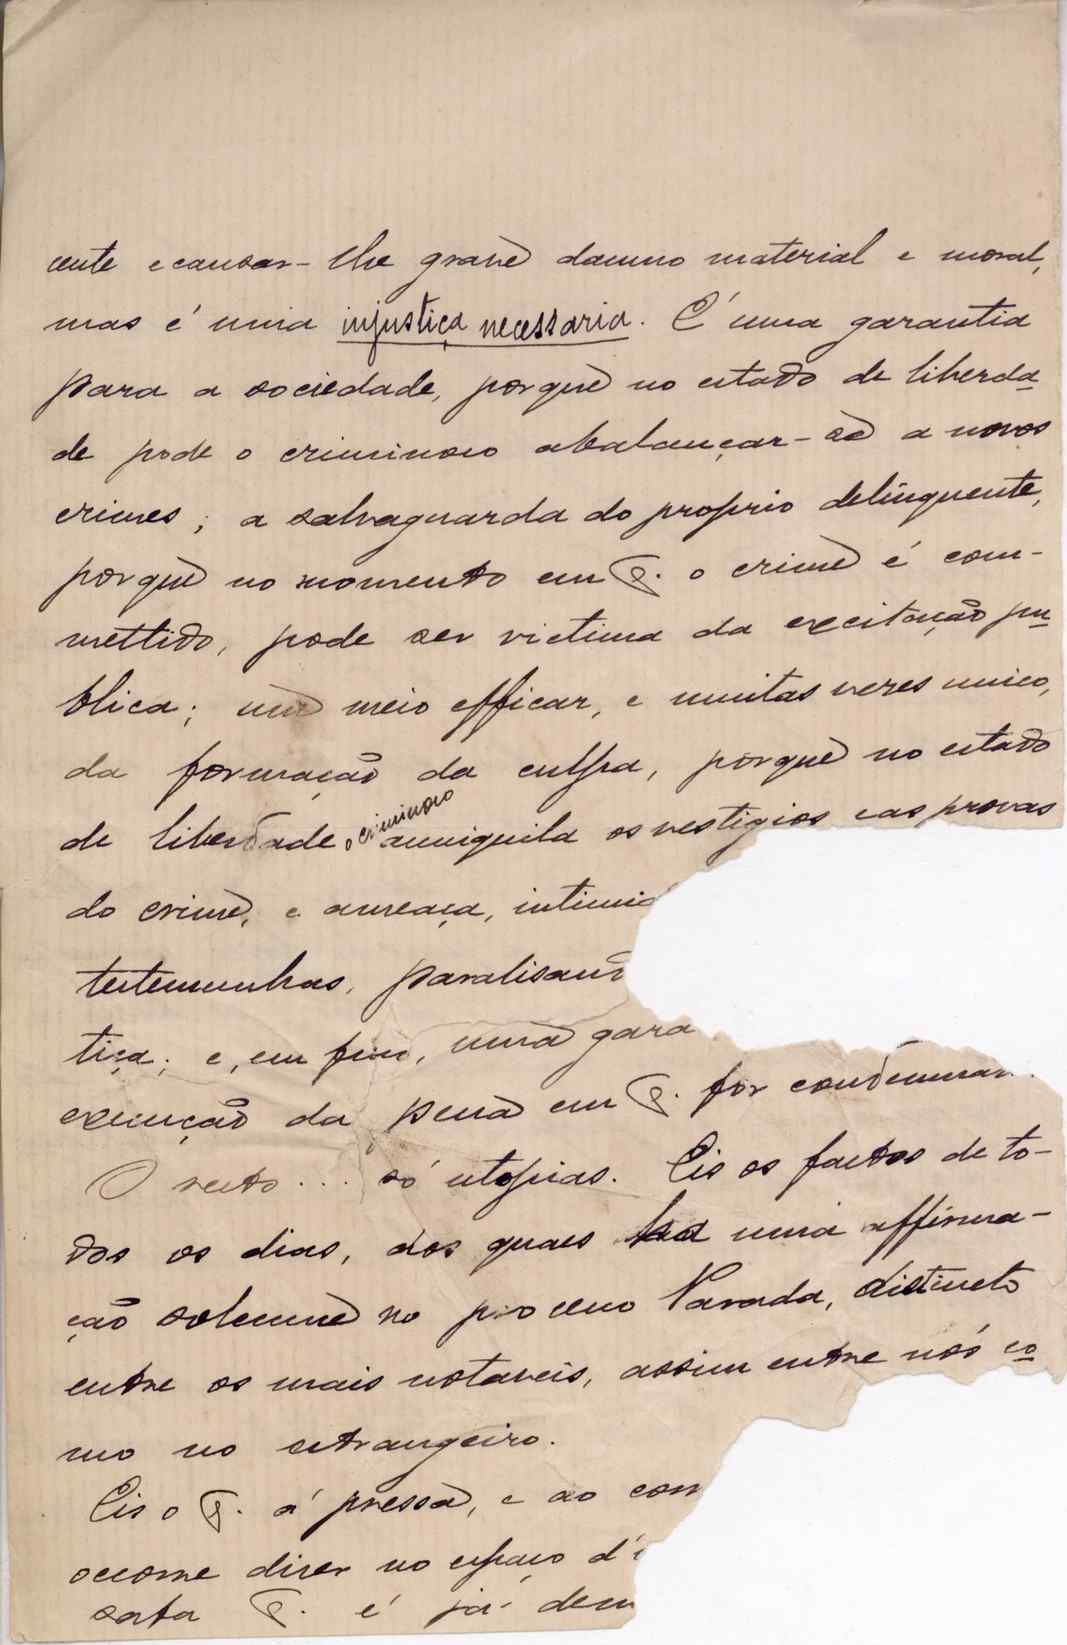 cente e causar-lhe grave damno material e moral,
mas é uma injustiça necessaria. É uma garantia
para a sociedade, porque no estado de liberda
de pode o criminoso abalançar-se a novos
crimes; a salvaguarda do proprio delinquente,
porque no momento em Q. o crime é com-
mettido, pode ser victima da excitação pu
blica; um meio efficaz, e muitas vezes unico,
da formação da culpa, porque no estado
de liberdade o criminoso anniquila os vestigios e as provas
do crime, e ameaça, intimid
testemunhas, paralisand
tiça; e, em fim, uma gara
execução da pena em Q. for condemna
O resto... só utopias. Eis os factos de to-
dos os dias, dos quaes ha uma affirma-
ção solemne no processo Varada, distincto
entre os mais notaveis, assim entre nós co
mo no estrangeiro.
Eis o Q. á pressa, e ao corr
occorre dizer no espaço d'
Q. é já dem